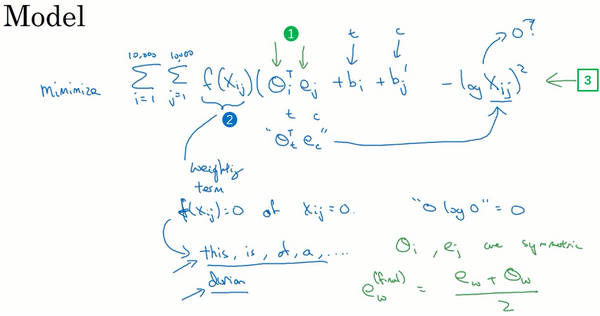 Model
1 t c 0?
minimize 10,000 Σ i=1 10,000 Σ j=1 f(Xij) (θiᵀ ej + bi + bj' − log Xij)² ← 3
2 t c
"θtᵀ ec"
weighting
term
f(Xij)=0 if Xij=0. "0 log 0" = 0
this, is, of, a, .... θi, ej are symmetric
durian ew(final) = (ew + θw) / 2